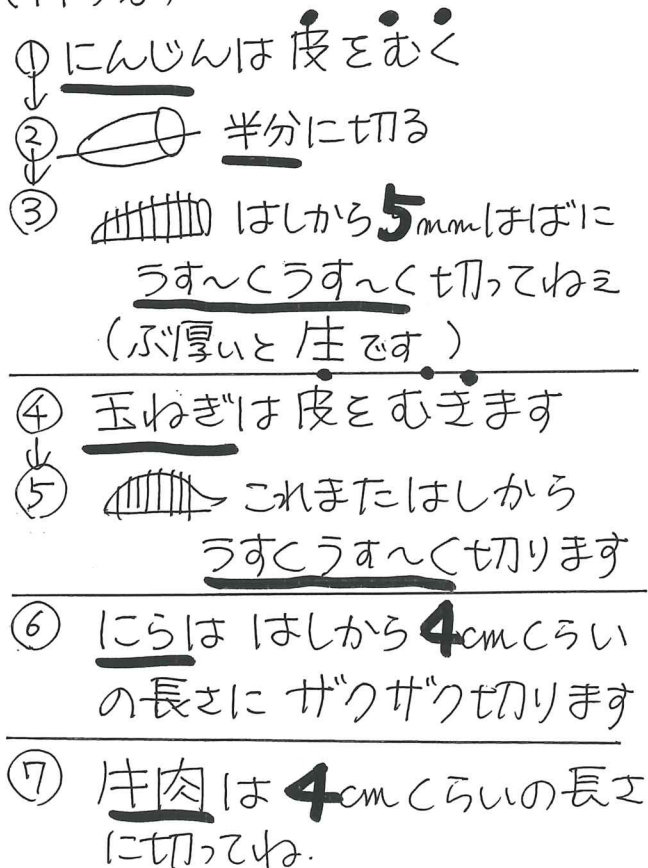 ① にんじんは皮をむく
② 半分に切る
③ はしから5mmはばに
うす〜くうす〜く切ってねぇ
(ぶ厚いと生です)
④ 玉ねぎは皮をむきます
⑤ これまたはしから
うすくうす〜く切ります
⑥ にらは はしから4cmくらい
の長さに ザクザク切ります
⑦ 牛肉は4cmくらいの長さ
に切ってね.